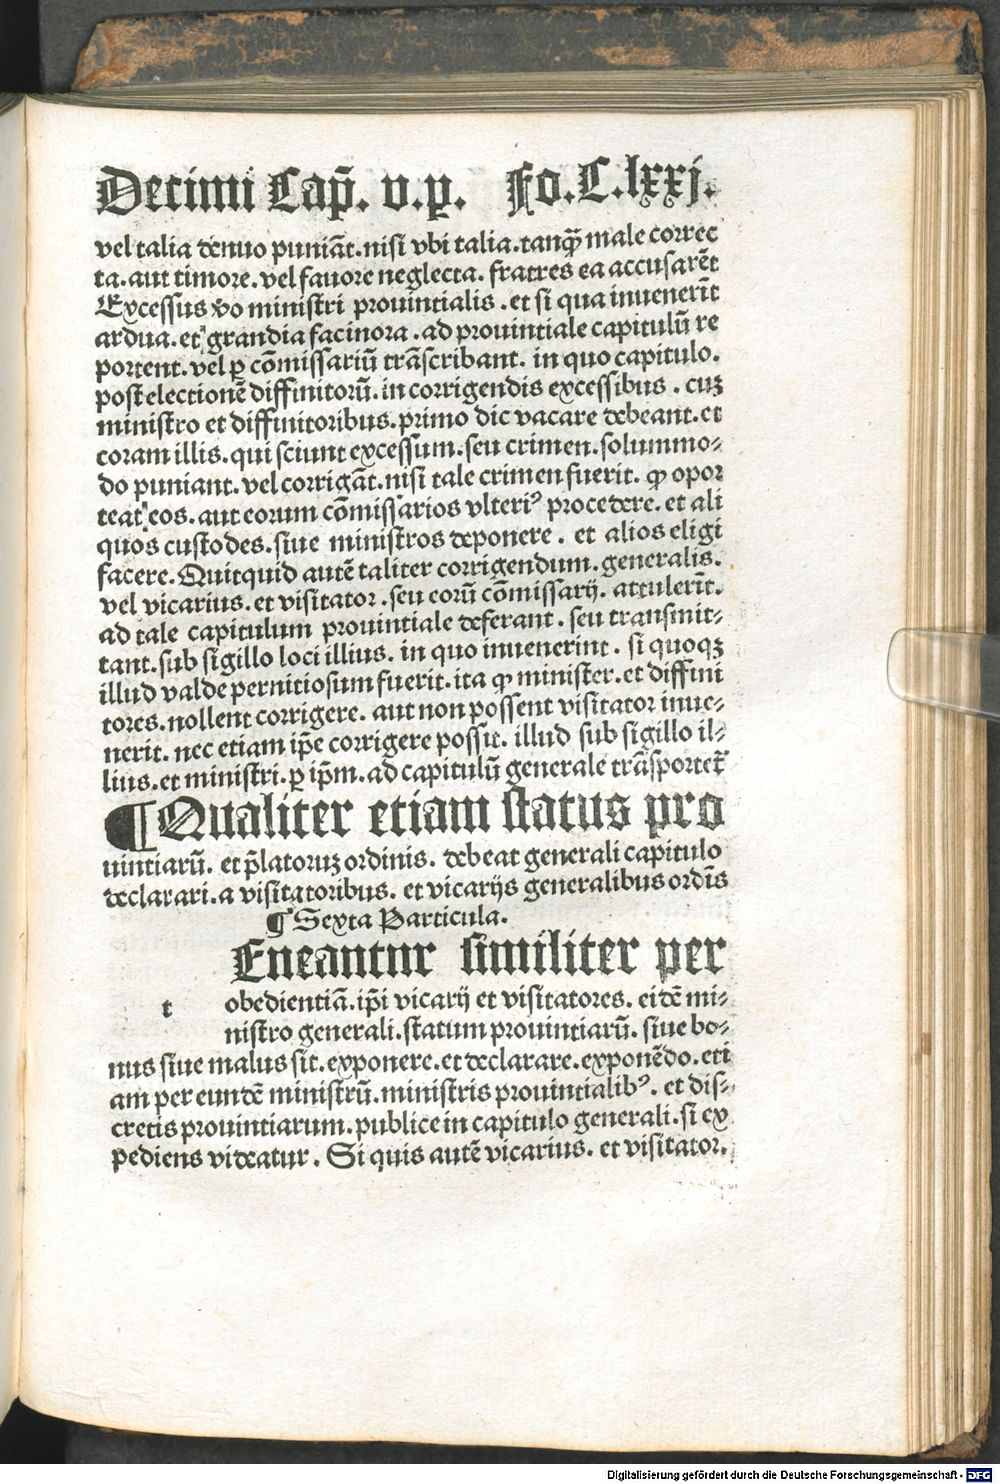 Decimi Cap̃. v.p̱. Fo.C.lxxj.
vel talia denuo puniãt.nisi vbi talia.tanq̃ male correc
ta.aut timore.vel fauore neglecta. fratres ea accusarẽt
Excessus ṽo ministri prouintialis.et si qua inuenerĩt
ardua.et grandia facinora.ad prouintiale capitulũ re
portent.vel ꝑ cõmissariũ trãscribant. in quo capitulo.
post electionẽ diffinitorũ.in corrigendis excessibus. cuꝫ
ministro et diffinitoribus.primo dic vacare debeant.et
coram illis.qui sciunt excessum.seu crimen.solummo-
do puniant.vel corrigãt.nisi tale crimen fuerit. ꝙ opor
teat eos.aut eorum cõmissarios vlteriꝰ procedere.et ali
quos custodes.siue ministros deponere. et alios eligi
facere.Quitquid autẽ taliter corrigendum.generalis.
vel vicarius.et visitator.seu eorũ cõmissarij. attulerĩt.
ad tale capitulum prouintiale deferant. seu transmit-
tant.sub sigillo loci illius. in quo inuenerint. si quoqꝫ
illud valde pernitiosum fuerit.ita ꝙ minister.et diffini
tores.nollent corrigere. aut non possent visitator inue-
nerit. nec etiam ip̃e corrigere possit. illud sub sigillo il-
lius.et ministri.ꝑ ip̃m.ad capitulũ generale trãsportet̃
¶Qualiter etiam status pro
uintiarũ. et p̃latoruꝫ ordinis. debeat generali capitulo
declarari.a visitatoribus. et vicarijs generalibus ordĩs
¶Sexta Particula.
Eneantur similiter per
t obedientiã.ip̃i vicarij et visitatores. eidẽ mi-
nistro generali.statum prouintiarũ. siue bo-
nus siue malus sit.exponere.et declarare.exponẽdo.eti
am per eundẽ ministrũ.ministris prouintialibꝰ. et dis-
cretis prouintiarum.publice in capitulo generali.si ex
pediens videatur. Si quis autẽ vicarius. et visitator.
Digitalisierung gefördert durch die Deutsche Forschungsgemeinschaft - DFG